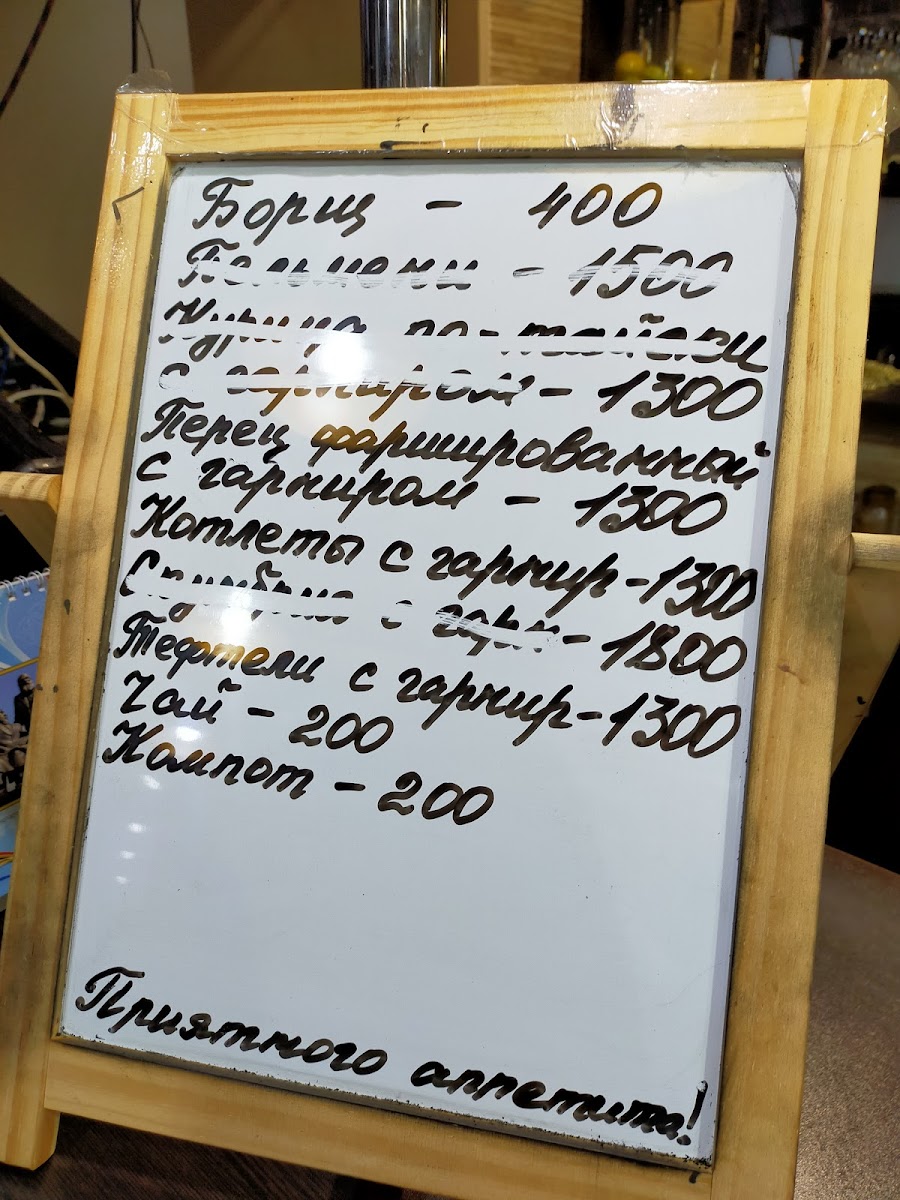 Борщ - 400
Пельмени - 1500
Курица по-тайски
с гарниром - 1300
Перец фаршированный
с гарниром - 1300
Котлеты с гарнир-1300
Скумбрия с гарн-1800
Тефтели с гарнир-1300
Чай - 200
Компот - 200
Приятного аппетита!